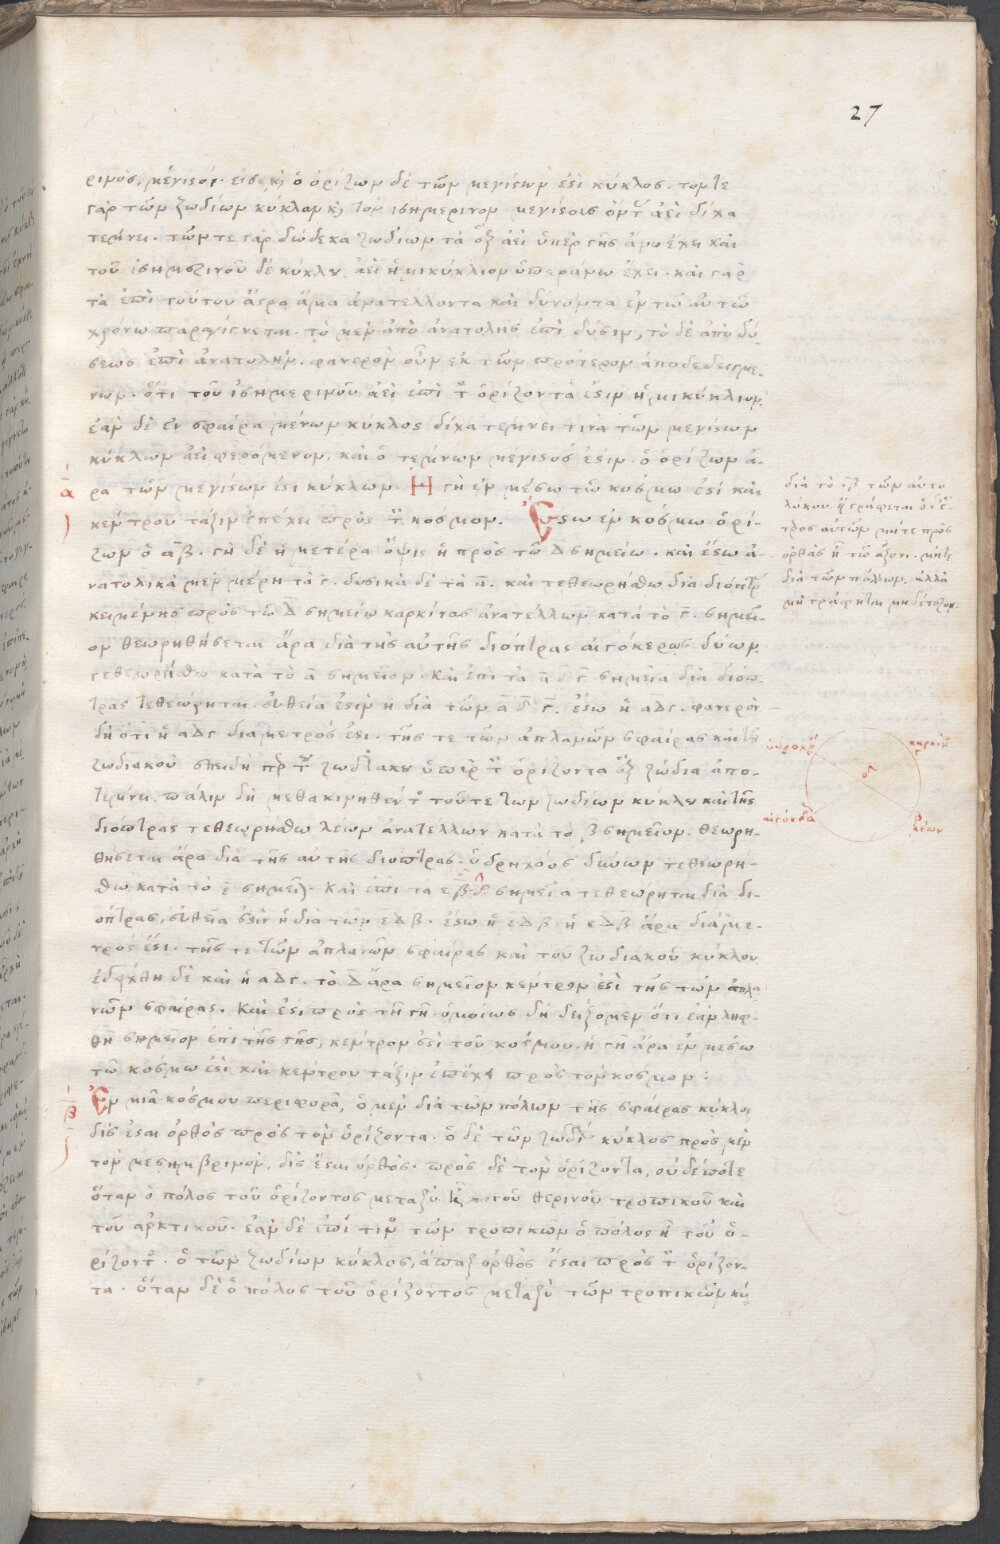 27
ρινός, μέγιστοι εἰσὶ καὶ ὁ ὁρίζων δὲ τῶν μεγίστων ἐστὶ κύκλος. τόν τε
γὰρ τῶν ζωδίων κύκλον καὶ τὸν ἰσημερινὸν μεγίστους ὄντας ἀεὶ δίχα
τέμνει. τῶν τε γὰρ δώδεκα ζωδίων τὰ ἓξ ἀεὶ ὑπὲρ γῆς ἄνω ἔχει καὶ
τοῦ ἰσημερινοῦ δὲ κύκλου ἀεὶ ἡμικύκλιον ὑπεράνω ἔχει. καὶ γὰρ
τὰ ἐπὶ τούτου ἄστρα ἅμα ἀνατέλλοντα καὶ δύνοντα ἐν τῷ αὐτῷ
χρόνῳ παραγίγνεται. τὸ μὲν ἀπὸ ἀνατολῆς ἐπὶ δύσιν, τὸ δὲ ἀπὸ δύ-
σεως ἐπὶ ἀνατολήν. φανερὸν οὖν ἐκ τῶν πρότερον ἀποδεδειγμέ-
νων. ὅτι τοῦ ἰσημερινοῦ ἀεὶ ἐπὶ τ ὁρίζοντά ἐστιν ἡμικύκλιον.
ἐὰν δὲ ἐν σφαίρα μένων κύκλος δίχα τέμνει τινὰ τῶν μεγίστων
κύκλων ἀεὶ φερόμενον, καὶ ὁ τέμνων μεγιστός ἐστιν. ὁ ὁρίζων ἄ-
α ρα τῶν μεγίστων ἐστὶ κύκλων. Η γῆ ἐν μέσω τῶ κόσμω ἐστὶ καὶ
κέντρου τάξιν ἐπέχει πρὸς τ κόσμον. Εστω ἐν κόσμω ὁρί-
ζων ὁ αβγ. γῆ δὲ ἡ μετέρα ὄψις ἡ πρὸς τῶ Δ σημείω. καὶ ἔστω ἀ-
νατολικὰ μὲν μέρη τὰ γ. δυσικὰ δὲ τὰ α. καὶ τεθεωρήσθω διὰ διόπτρ
κειμένης πρὸς τῶ Δ σημείω καρκίνος ἀνατέλλων κατὰ τὸ γ. σημεῖ-
ον θεωρηθήσεται ἄρα διὰ τῆς αὐτῆς διόπτρας αἰγόκερως δύων.
τεθεωρήσθω κατὰ τὸ α σημεῖον. Καὶ ἐπὶ τὰ α δ γ σημεῖα διὰ διόπ-
τρας τεθεώρηται. εὐθεῖα ἐστιν ἡ διὰ τῶν α δ γ. ἔστω ἡ αΔγ. φανερὸν
δὴ ὅτι ἡ αΔγ διάμετρός ἐστι. τῆς τε τῶν ἀπλανῶν σφαίρας καὶ τοῦ
ζωδιακοῦ ἐπειδὴ περ τοῦ ζωδιακου ὑπὲρ τ ὁρίζοντα ἓξ ζώδια ἀπο-
τέμνει. πάλιν δὴ μετακινηθέντος τοῦ τε τῶν ζωδίων κύκλου καὶ τῆς
διόπτρας τεθεωρήσθω λέων ἀνατέλλων κατὰ τὸ β σημεῖον. θεωρη-
θήσεται ἄρα διὰ τῆς αὐτῆς διόπτρας. ὑδρηχόος δύνων τεθεωρή-
σθω κατὰ τὸ ε σημεῖον. Καὶ ἐπὶ τὰ εβδ σημεῖα τεθεώρηται διὰ δι-
όπτρας, εὐθεῖα ἐστιν ἡ διὰ τῶν εΔβ. ἔστω ἡ εΔβ. ἡ εΔβ ἄρα διάμε-
τρός ἐστι. τῆς τε τῶν ἀπλανῶν σφαίρας καὶ τοῦ ζωδιακοῦ κύκλου
ἐδείχθη δὲ καὶ ἡ αΔγ. τὸ Δ ἄρα σημεῖον κέντρον ἐστὶ τῆς τῶν ἀπλα
νῶν σφαίρας. Καὶ ἐστι πρὸς τῆ γῆ. ὁμοίως δὴ δείξομεν ὅτι ἐὰν ληφ-
θῆ σημεῖον ἐπὶ τῆς γῆς, κέντρον ἐστὶ τοῦ κόσμου. ἡ γῆ ἄρα ἐν μέσω
τῶ κόσμω ἐστὶ καὶ κέντρου τάξιν ἐπέχει πρὸς τὸν κόσμον :
β Εν μιᾶ κόσμου περιφορᾶ, ὁ μὲν διὰ τῶν πόλων τῆς σφαίρας κύκλος
δὶς ἔσται ὀρθὸς πρὸς τὸν ὁρίζοντα. ὁ δὲ τῶν ζωδίων κύκλος πρὸς μὲν
τὸν μεσημβρινὸν, δὶς ἔσται ὀρθὸς. πρὸς δὲ τὸν ὁρίζοντα, οὐδέποτε
ὅταν ὁ πόλος τοῦ ὁρίζοντος μεταξὺ ἦ τοῦ θερινοῦ τροπικοῦ καὶ
τοῦ ἀρκτικοῦ. ἐὰν δὲ ἐπί τινος τῶν τροπικῶν ὁ πόλος ἦ τοῦ ὁ-
ρίζοντος. ὁ τῶν ζωδίων κύκλος, ἅπαξ ὀρθὸς ἔσται πρὸς τ ὁρίζον-
τα. ὅταν δὲ ὁ πόλος τοῦ ὁρίζοντος μεταξὺ τῶν τροπικῶν κύ-
διὰ τὸ τῶν αὐτο
λύκου.
τρος αὐτῶν μήτε πρὸς
ὀρθὰς ἦ τῶ ἄξονι. μήτε
διὰ τῶν πόλων. ἀλλὰ
ὑδροχό
καρκίνος
γ
δ
αἰγόκερως α
β
λέων